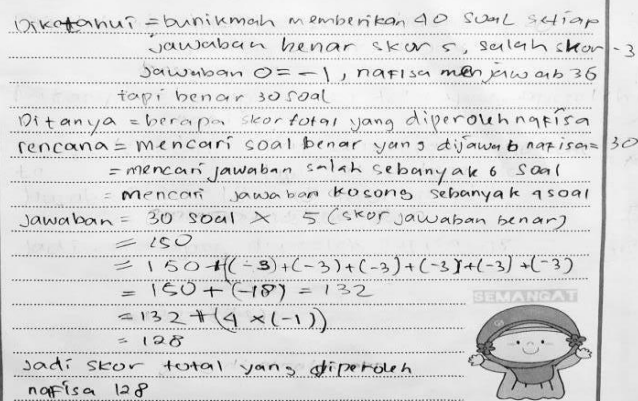 Diketahui = bu nikmah memberikan 40 soal setiap
jawaban benar skor 5, salah skor -3
Jawaban 0 = -1, nafisa menjawab 36
tapi benar 30 soal
Ditanya = berapa skor total yang diperoleh nafisa
rencana = mencari soal benar yang dijawab nafisa = 30
= mencari jawaban salah sebanyak 6 soal
= mencari jawaban kosong sebanyak 4 soal
Jawaban = 30 soal × 5 (skor jawaban benar)
= 150
= 150 + ((-3)+(-3)+(-3)+(-3)+(-3)+(-3)
= 150 + (-18) = 132
= 132 + (4 × (-1))
= 128
SEMANGAT
Jadi skor total yang diperoleh
nafisa 128